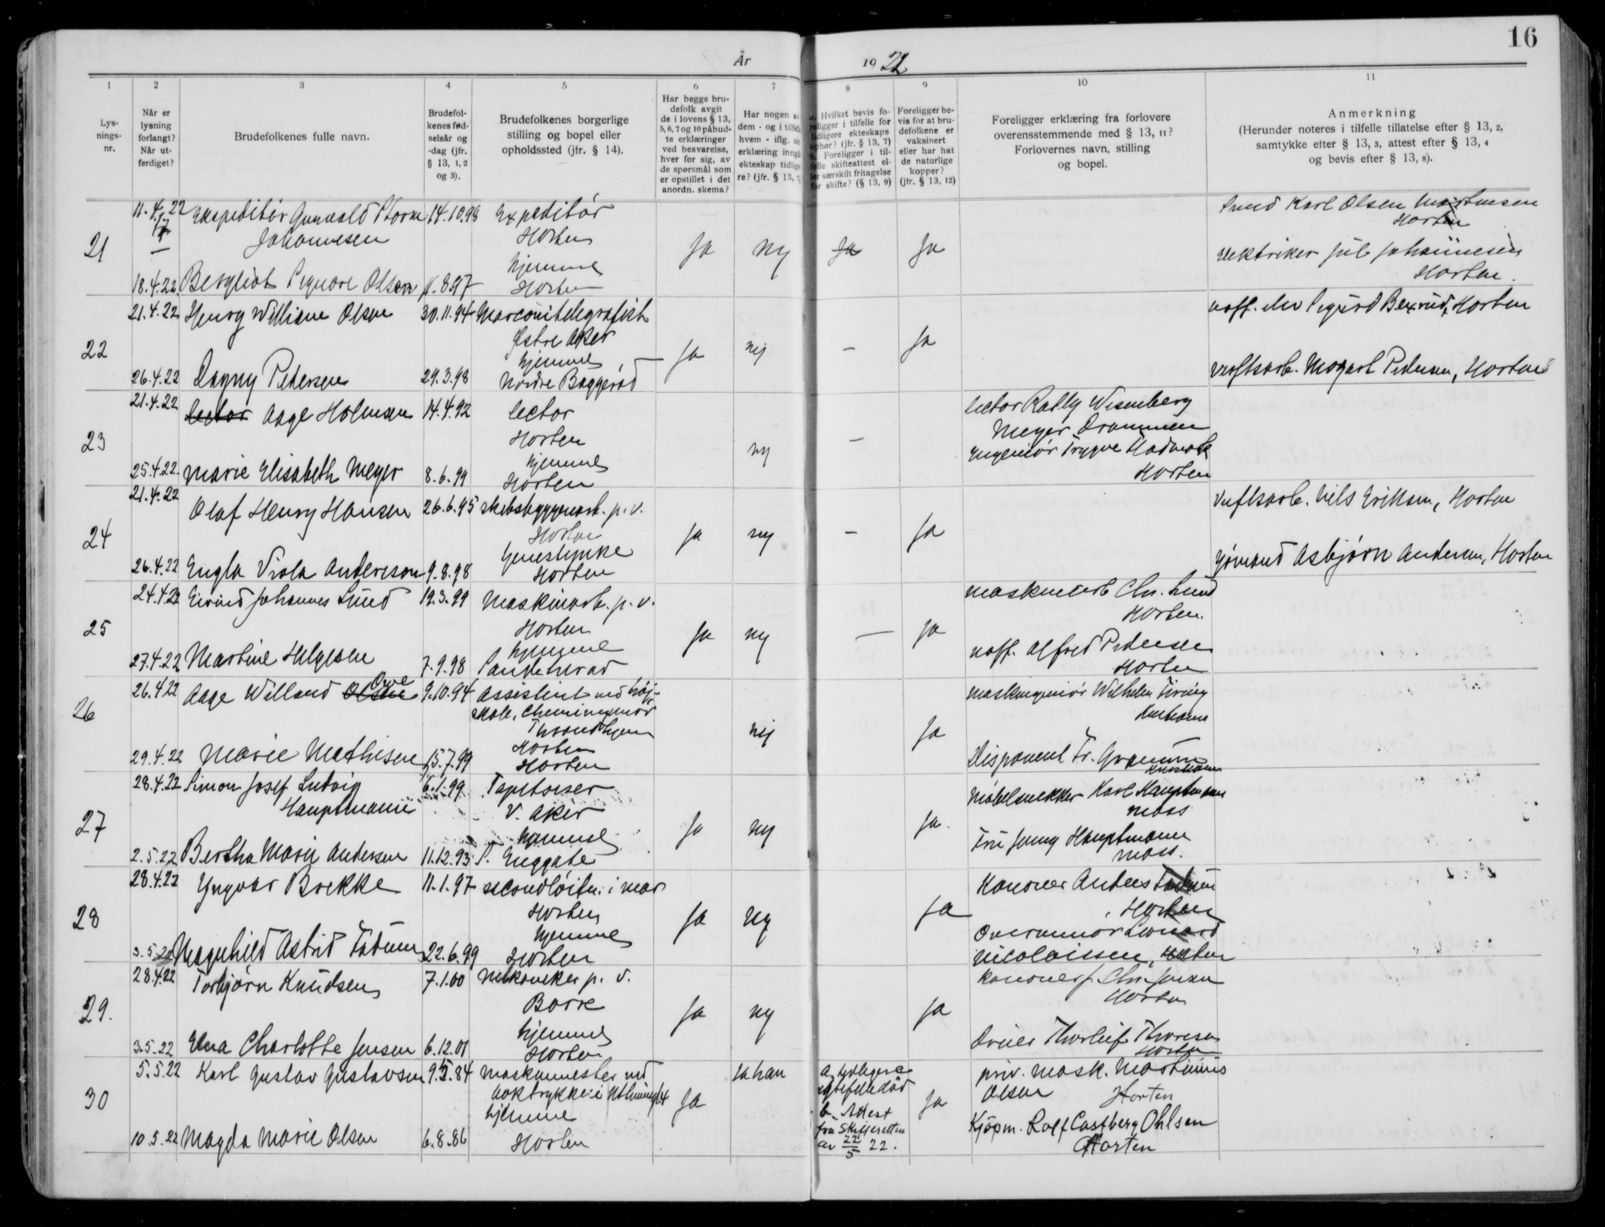 16
År 1922
1 2 3 4 5 6 7 8 9 10 11
Lys-
nings-
nr.
Når er
lysning
forlangt?
Når ut-
ferdiget?
Brudefolkenes fulle navn.
Brudefol-
kenes fød-
selsår og
-dag (jfr.
§ 13, 1, 2
og 3).
Brudefolkenes borgerlige
stilling og bopel eller
opholdssted (jfr. § 14).
Har begge bru-
defolk avgit
de i lovens § 13,
5, 6, 7 og 10 påbud-
te erklæringer
ved besvarelse,
hver for sig, av
de spørsmål som
er opstillet i det
anordn. skema?
Har nogen
dem - og i
hvem - iflg.
erklæring
ekteskap
re? (jfr. § 13,
Hvilket bevis fo-
religger i tilfelle for
tidligere ekteskaps
ophør? (jfr. § 13, 7)
Foreligger i til-
felle skifteattest el-
ler særskilt fritagelse
for skifte? (§ 13, 9)
Foreligger be-
vis for at bru-
defolkene er
vaksinert
eller har hat
de naturlige
kopper?
(jfr. § 13, 12)
Foreligger erklæring fra forlovere
overensstemmende med § 13, 11?
Forlovernes navn, stilling
og bopel.
Anmerkning
(Herunder noteres i tilfelle tillatelse efter § 13, 2,
samtykke efter § 13, 3, attest efter § 13, 4
og bevis efter § 13, 8).
21
11.4.22 Ekspeditør Gunvald Storm 14.10.98 Expeditør
Johannesen Horten
Ja nej Ja Ja
Karl Olsen
Horten
elektriker Jul Johannesen
Horten
hjemme
18.4.22 Bergliot Signore Olsen 4.8.97 Horten
22
21.4.22 Henry William Olsen 30.11.94 Marconitelegrafist
Østre Aker
Ja nej — Ja
Sigurd Bexrud, Horten
hjemme
26.4.22 Dagny Petersen 29.3.98 Nordre Baggerød
verftsarb. Mozart Pedersen, Horten
23
21.4.22 lector Aage Holmsen 14.4.92 lector
Horten
nej —
lector Rolly Wesenberg
Meyer Drammen
Ingeniør Trygve
Horten
hjemme
25.4.22 Marie Elisabeth Meyer 8.6.99 Horten
24
21.4.22 Olaf Henry Hansen 26.6.95 skibsbyggerarb. p. v.
Horten
Ja nej — Ja
verftsarb. Nils Eriksen, Horten
tjenestepike
26.4.22 Engla Viola Andersson 9.8.98 Horten
Asbjørn Andersen, Horten
25
24.4.22 Eivind Johannes Lund 19.3.99 Maskinarb. p. v.
Horten
Ja nej — Ja
maskinarb Chr. Lund
Horten.
hjemme
27.4.22 Martine Helgesen 7.9.98
uoff. Alfred Pedersen
Horten
26
26.4.22 Aage Willand Olsen Owe 9.10.94 Assistent ved høj-
skole, Chemiingeniør
Throndhjem
nej Ja
maskiningeniør Wilhelm
29.4.22 Marie Mathisen 15.7.99 Horten
Horten
Disponent Fr.
27
28.4.22 Simon Josef Ludvig 6.1.99 Tapetserer
Hauptmann V. Aker
Ja nej Ja
Møbelsnekker Karl Hauptmann
Moss
hjemme
2.5.22 Bertha Marie Andersen 11.12.93 T. Enggate
Fru Jenny Hauptmann
Moss.
28
28.4.22 Yngvar Brekke 11.1.97 secondløitn. i mar
Horten
Ja nej Ja
Kanoner Anders
Horten
hjemme
3.5.22 Magnhild Astrid Fadum 22.6.99 Horten
Leonard
Nicolaissen, Horten
29.
28.4.22 Torbjørn Knudsen 7.1.00 mekaniker p. v.
Borre
Ja nej Ja
Kanoner
Horten
hjemme
3.5.22 Elna Charlotte Jensen 6.12.01 Horten
Dreier Thorleif Thoresen
Horten
30
5.5.22 Karl Gustav Gustavsen 9.5.84 maskinmester ved
boktrykkeri
Ja Ja han
a.
b. Attest
fra Skifteretten
av 22/5 22.
Ja
priv. mask. Martinius
Olsen Horten
hjemme
10.5.22 Magda Marie Olsen 6.8.86 Horten
Kjøpm. Rolf Castberg Ohlsen
Horten